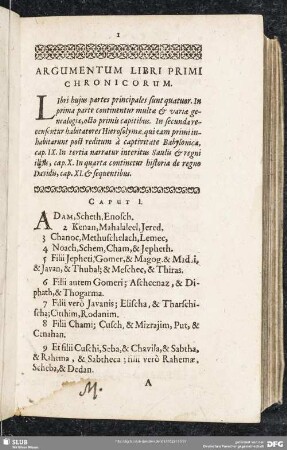 1
ARGUMENTUM LIBRI PRIMI
CHRONICORUM.
LIbri hujus partes principales sunt quatuor. In
prima parte continentur multæ & variæ ge-
nealogiæ, octo primis capitibus. In secunda re-
censentur habitatores Hierosolymæ, qui eam primi in-
habitarunt post reditum à captivitate Babylonica,
cap. IX. In tertia narratur interitus Saulis & regni
cap. X. In quarta continetur historia de regno
Davidis, cap. XI. & sequentibus.
CAPUT I.
ADAM, Scheth, Enosch.
2 Kenan, Mahalaleel, Jered.
3 Chanoc, Methuschelach, Lemec,
4 Noach, Schem, Cham, & Jepheth.
5 Filii Jepheti; Gomer, & Magog, & Madai,
& Javan, & Thubal; & Meschec, & Thiras.
6 Filii autem Gomeri; Aschcenaz, & Di-
phath, & Thogarma.
7 Filii verò Javanis; Elischa, & Tharschi-
scha; Cithim, Rodanim.
8 Filii Chami; Cusch, & Mizrajim, Put, &
Cenahan.
9 Et filii Cuschi, Seba, & Chavila, & Sabtha,
& Rahema, & Sabtheca; filii verò Rahemæ,
Scheba, & Dedan.
A
M.
SLUB
DFG